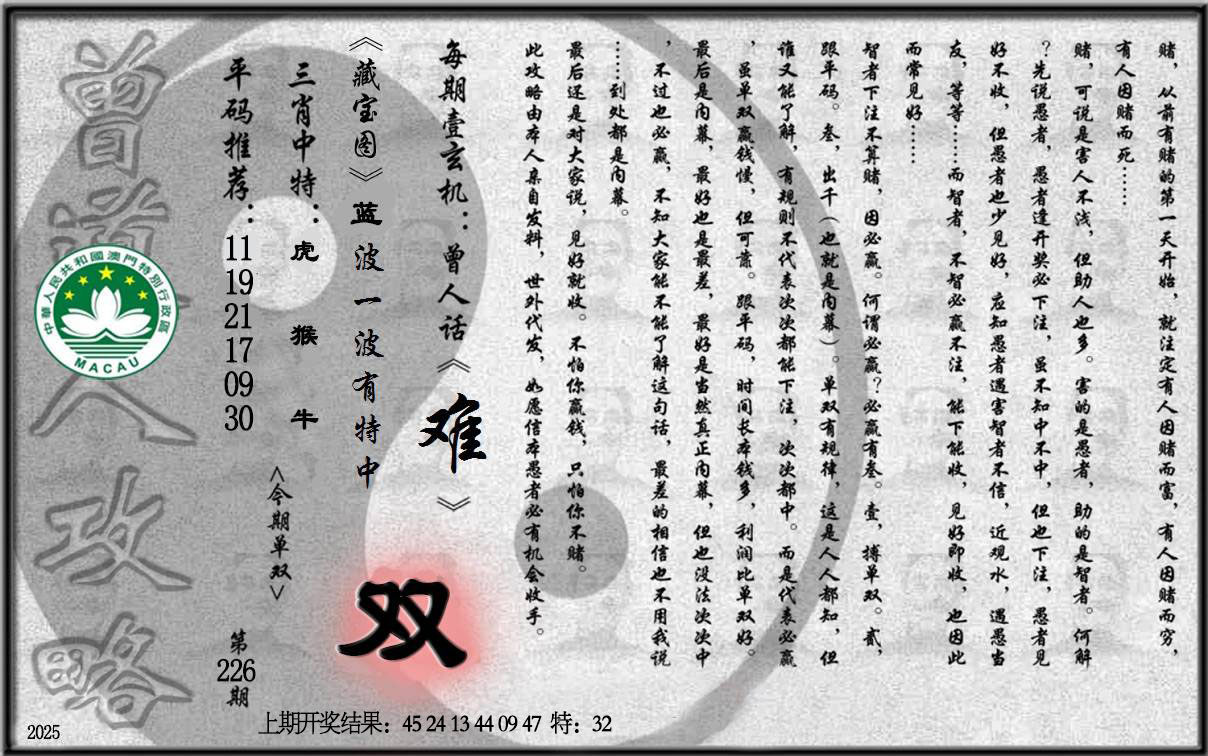 赌，从前有赌的第一天开始，就注定有人因赌而富，有人因赌而穷，
有人因赌而死……
赌，可说是害人不浅，但助人也多。害的是愚者，助的是智者。何解
？先说愚者，愚者逢开奖必下注，虽不知中不中，但也下注，愚者见
好不收，但愚者也少见好，应知愚者遇害智者不信，近观水，遇愚当
友，等等……而智者，不智必赢不注，能下能收，见好即收，也因此
而常见好……
智者下注不算赌，因必赢。何谓必赢？必赢有叁。壹，搏单双。贰，
跟平码。叁，出千（也就是内幕）。单双有规律，这是人人都知，但
谁又能了解，有规则不代表次次都能下注，次次都中。而是代表必赢
，虽单双赢钱慢，但可靠。跟平码，时间长本钱多，利润比单双好。
最后是内幕，最好也是最差，最好是当然真正内幕，但也没法次次中
，不过也必赢，不知大家能不能了解这句话，最差的相信也不用我说
……到处都是内幕。
最后还是对大家说，见好就收。不怕你赢钱，只怕你不赌。
此攻略由本人亲自发料，世外代发，如愿信本愚者必有机会收手。
每期壹玄机：曾人话《难》
《藏宝图》蓝波一波有特中
双
三肖中特：虎 猴 牛
<今期单双>
平码推荐：
11
19
21
17
09
30
第
226
期
曾道人攻略
中華人民共和國澳門特別行政區
MACAU
上期开奖结果：45 24 13 44 09 47 特：32
2025